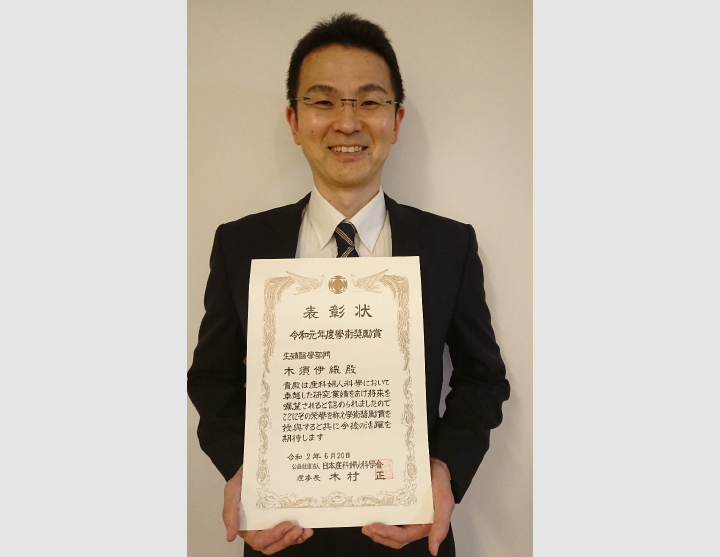 表彰状
令和元年度學術奨励賞
生殖醫學部門
木須伊織殿
貴殿は産科婦人科學において
卓越した研究業績をあげ将来を
嘱望されると認められましたので
ここにその栄譽を称え學術奨励賞を
授與すると共に今後の活躍を
期待します
令和2年6月20日
公益社団法人 日本産科婦人科學會
理事長 木村 正